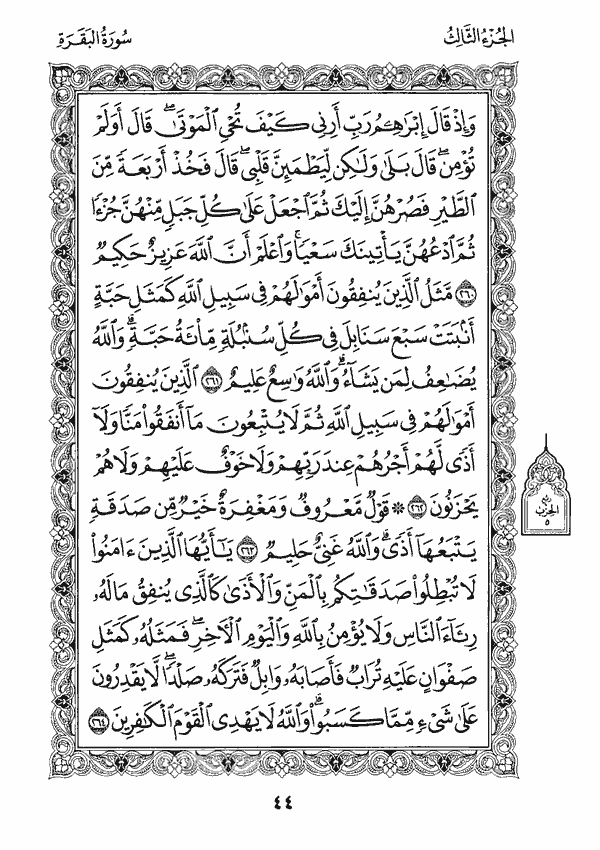 الجُزْءُ الثَّالِثُ
سُورَةُ البَقَرَةِ
وَإِذْ قَالَ إِبْرَٰهِـۧمُ رَبِّ أَرِنِى كَيْفَ تُحْىِ ٱلْمَوْتَىٰ ۖ قَالَ أَوَلَمْ
تُؤْمِن ۖ قَالَ بَلَىٰ وَلَٰكِن لِّيَطْمَئِنَّ قَلْبِى ۖ قَالَ فَخُذْ أَرْبَعَةً مِّنَ
ٱلطَّيْرِ فَصُرْهُنَّ إِلَيْكَ ثُمَّ ٱجْعَلْ عَلَىٰ كُلِّ جَبَلٍ مِّنْهُنَّ جُزْءًا
ثُمَّ ٱدْعُهُنَّ يَأْتِينَكَ سَعْيًا ۚ وَٱعْلَمْ أَنَّ ٱللَّهَ عَزِيزٌ حَكِيمٌ
٢٦٠ مَّثَلُ ٱلَّذِينَ يُنفِقُونَ أَمْوَٰلَهُمْ فِى سَبِيلِ ٱللَّهِ كَمَثَلِ حَبَّةٍ
أَنۢبَتَتْ سَبْعَ سَنَابِلَ فِى كُلِّ سُنۢبُلَةٍ مِّا۟ئَةُ حَبَّةٍ ۗ وَٱللَّهُ
يُضَٰعِفُ لِمَن يَشَآءُ ۗ وَٱللَّهُ وَٰسِعٌ عَلِيمٌ ٢٦١ ٱلَّذِينَ يُنفِقُونَ
أَمْوَٰلَهُمْ فِى سَبِيلِ ٱللَّهِ ثُمَّ لَا يُتْبِعُونَ مَآ أَنفَقُوا۟ مَنًّا وَلَآ
أَذًى لَّهُمْ أَجْرُهُمْ عِندَ رَبِّهِمْ وَلَا خَوْفٌ عَلَيْهِمْ وَلَا هُمْ
يَحْزَنُونَ ٢٦٢ ۞ قَوْلٌ مَّعْرُوفٌ وَمَغْفِرَةٌ خَيْرٌ مِّن صَدَقَةٍ
يَتْبَعُهَآ أَذًى ۗ وَٱللَّهُ غَنِىٌّ حَلِيمٌ ٢٦٣ يَٰٓأَيُّهَا ٱلَّذِينَ ءَامَنُوا۟
لَا تُبْطِلُوا۟ صَدَقَٰتِكُم بِٱلْمَنِّ وَٱلْأَذَىٰ كَٱلَّذِى يُنفِقُ مَالَهُۥ
رِئَآءَ ٱلنَّاسِ وَلَا يُؤْمِنُ بِٱللَّهِ وَٱلْيَوْمِ ٱلْـَٔاخِرِ ۖ فَمَثَلُهُۥ كَمَثَلِ
صَفْوَانٍ عَلَيْهِ تُرَابٌ فَأَصَابَهُۥ وَابِلٌ فَتَرَكَهُۥ صَلْدًا ۖ لَّا يَقْدِرُونَ
عَلَىٰ شَىْءٍ مِّمَّا كَسَبُوا۟ ۗ وَٱللَّهُ لَا يَهْدِى ٱلْقَوْمَ ٱلْكَٰفِرِينَ ٢٦٤
ربع
الحزب
٥
٤٤